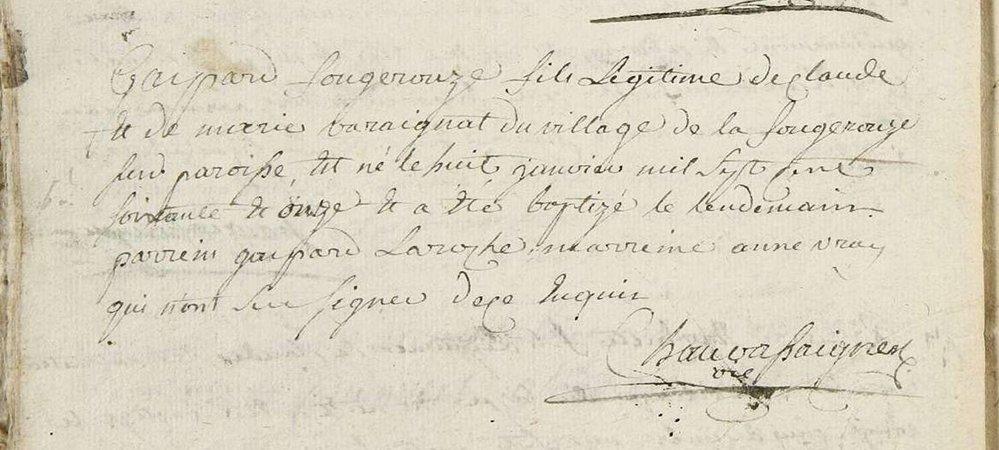 Gaspard fougerouze fils Legitime de claude
et de marie baraignat du village de la fougerouze
paroisse, est né le huit janvier mil sept cent
soixante et onze et a été baptizé le lendemain
parrein gaspard Laroche, marreine anne vray
qui n'ont sçu signer de ce enquis
vic